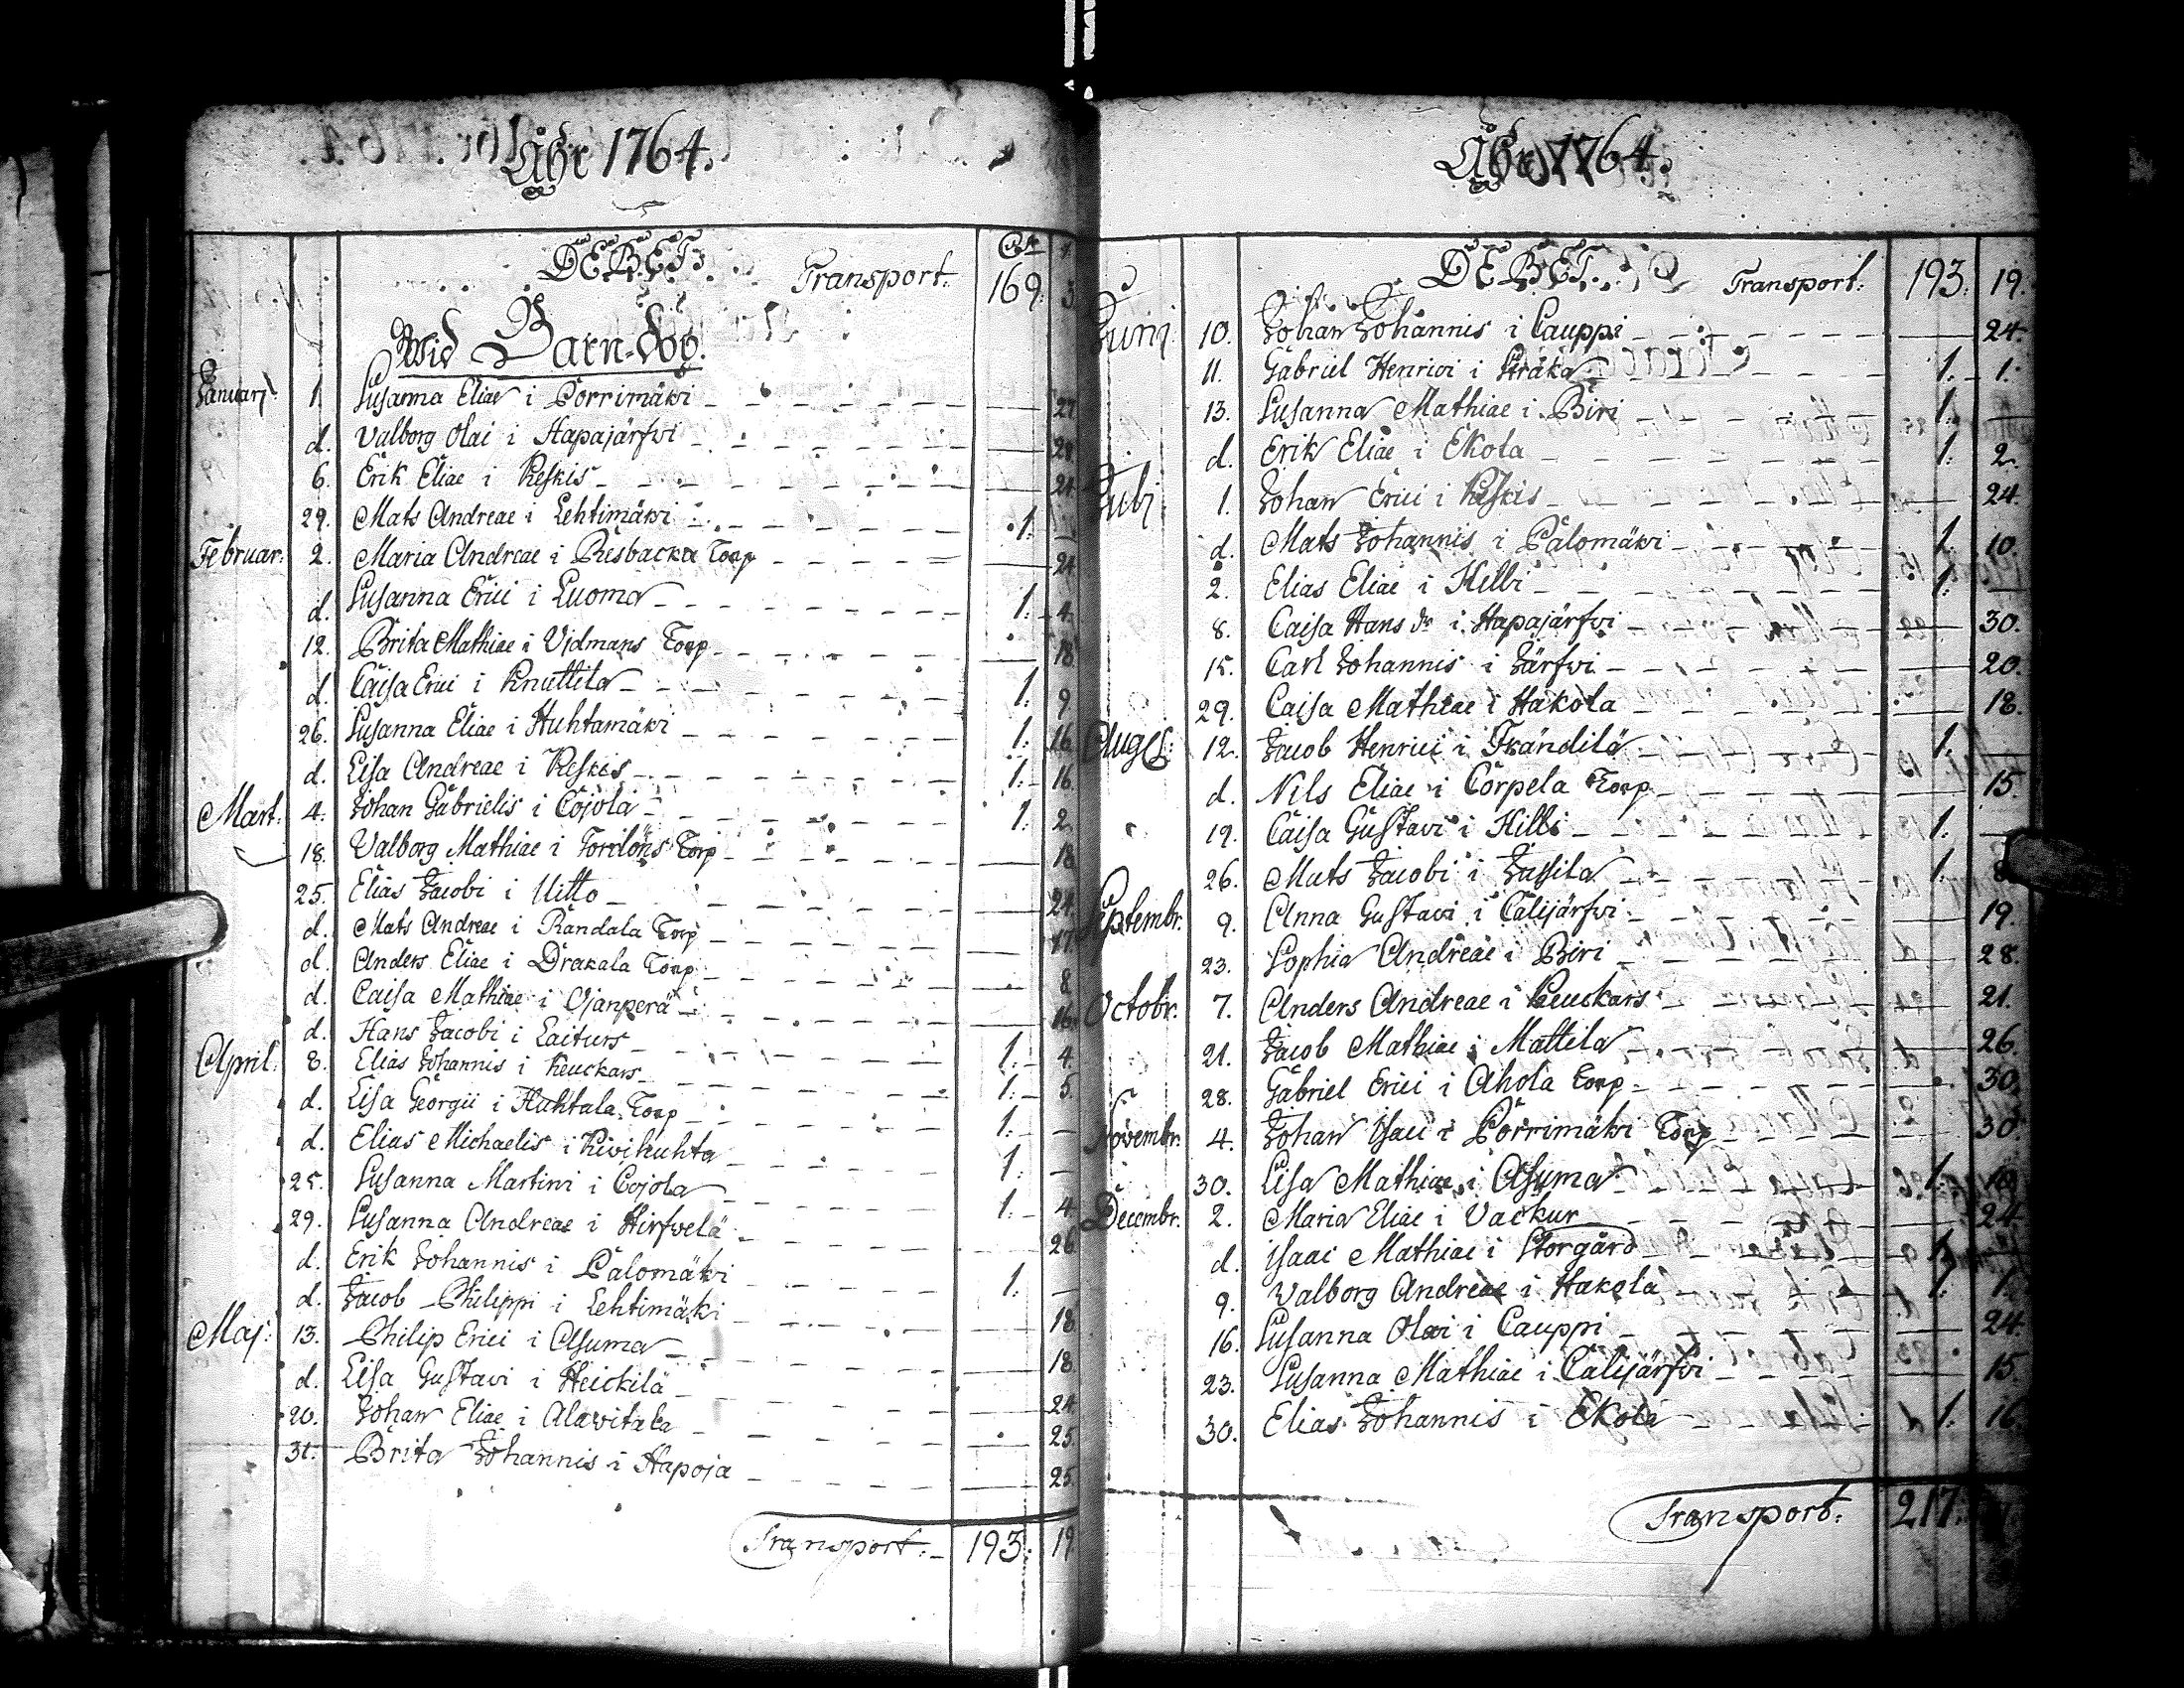 Åhr 1764.
DEBET
Transport. 169. 3.
Wid Barn-Dop.
Januarj 1. Susanna Eliae i Pörrimäki 27
d. Valborg Olai i Hapajärfvi 28
6. Erik Eliae i Keskis 24
29. Mats Andreae i Lehtimäki 1.
Februar: 2. Maria Andreae i Resbacka Torp 24
d. Susanna Erici i Luoma 1. 4.
12. Brita Mathiae i Vidmans Torp 18
d. Caisa Erici i Knuttila 1. 9
26. Susanna Eliae i Huhtamäki 1. 16
d. Lisa Andreae i Keskis 1. 16.
Mart: 4. Johan Gabrielis i Cojola 1. 2.
18. Valborg Mathiae i Torp 18
25. Elias Jacobi i Uitto 24.
d. Mats Andreae i Randala Torp 17.
d. Anders Eliae i Drakala Torp 8
d. Caisa Mathiae i Ojanperä 16.
d. Hans Jacobi i Laiturs 1. 4.
April. 8. Elias Johannis i Keuckars 1. 5.
d. Lisa Georgii i Huhtala Torp 1.
d. Elias Michaelis i Kivihuhta 1.
25. Susanna Martini i Cojola 1. 4.
29. Susanna Andreae i Hirfvelä 26
d. Erik Johannis i Palomäki 1.
d. Jacob Philippi i Lehtimäki 18
Maj: 13. Philip Erici i Asuma 18
d. Lisa Gustavi i Heickilä 24
20. Johan Eliae i Alavitala 25.
31. Brita Johannis i Hapoja 25.
Transport. 193. 19
Åhr 1764.
DEBET.
Transport. 193. 19.
Junij 10. Johan Johannis i Cauppi 24.
11. Gabriel Henrici i Kråka 1. 1.
13. Susanna Mathiae i Biri 1.
d. Erik Eliae i Ekola 1. 2.
Julij 1. Johan Erici i Keskis 24.
d. Mats Johannis i Palomäki 1. 10.
2. Elias Eliae i Hilli 1.
8. Caisa Hans dr i Hapajärfvi 30.
15. Carl Johannis i Järfvi 20.
29. Caisa Mathiae i Hakola 18.
Aug: 12. Jacob Henrici i Frändilä 1.
d. Nils Eliae i Corpela Torp 15.
19. Caisa Gustavi i Hilli 1.
26. Mats Jacobi i Jussila 1. 8.
Septembr. 9. Anna Gustavi i Calijärfvi 19.
23. Sophia Andreae i Biri 28.
Octobr. 7. Anders Andreae i Keuckars 21.
21. Jacob Mathiae i Mattila 26.
28. Gabriel Erici i Ahola Torp 30.
Novembr. 4. Johan Isaci i Pörrimäki Torp 30.
30. Lisa Mathiae i Asuma 1. 10
Decembr. 2. Maria Eliae i Vackur 24.
d. Isaac Mathiae i Storgård 1.
9. Valborg Andreae i Hakola 1. 1.
16. Susanna Olai i Cauppi 24.
23. Susanna Mathiae i Calijärfvi 15.
30. Elias Johannis i Ekola 1. 16.
Transport. 217.